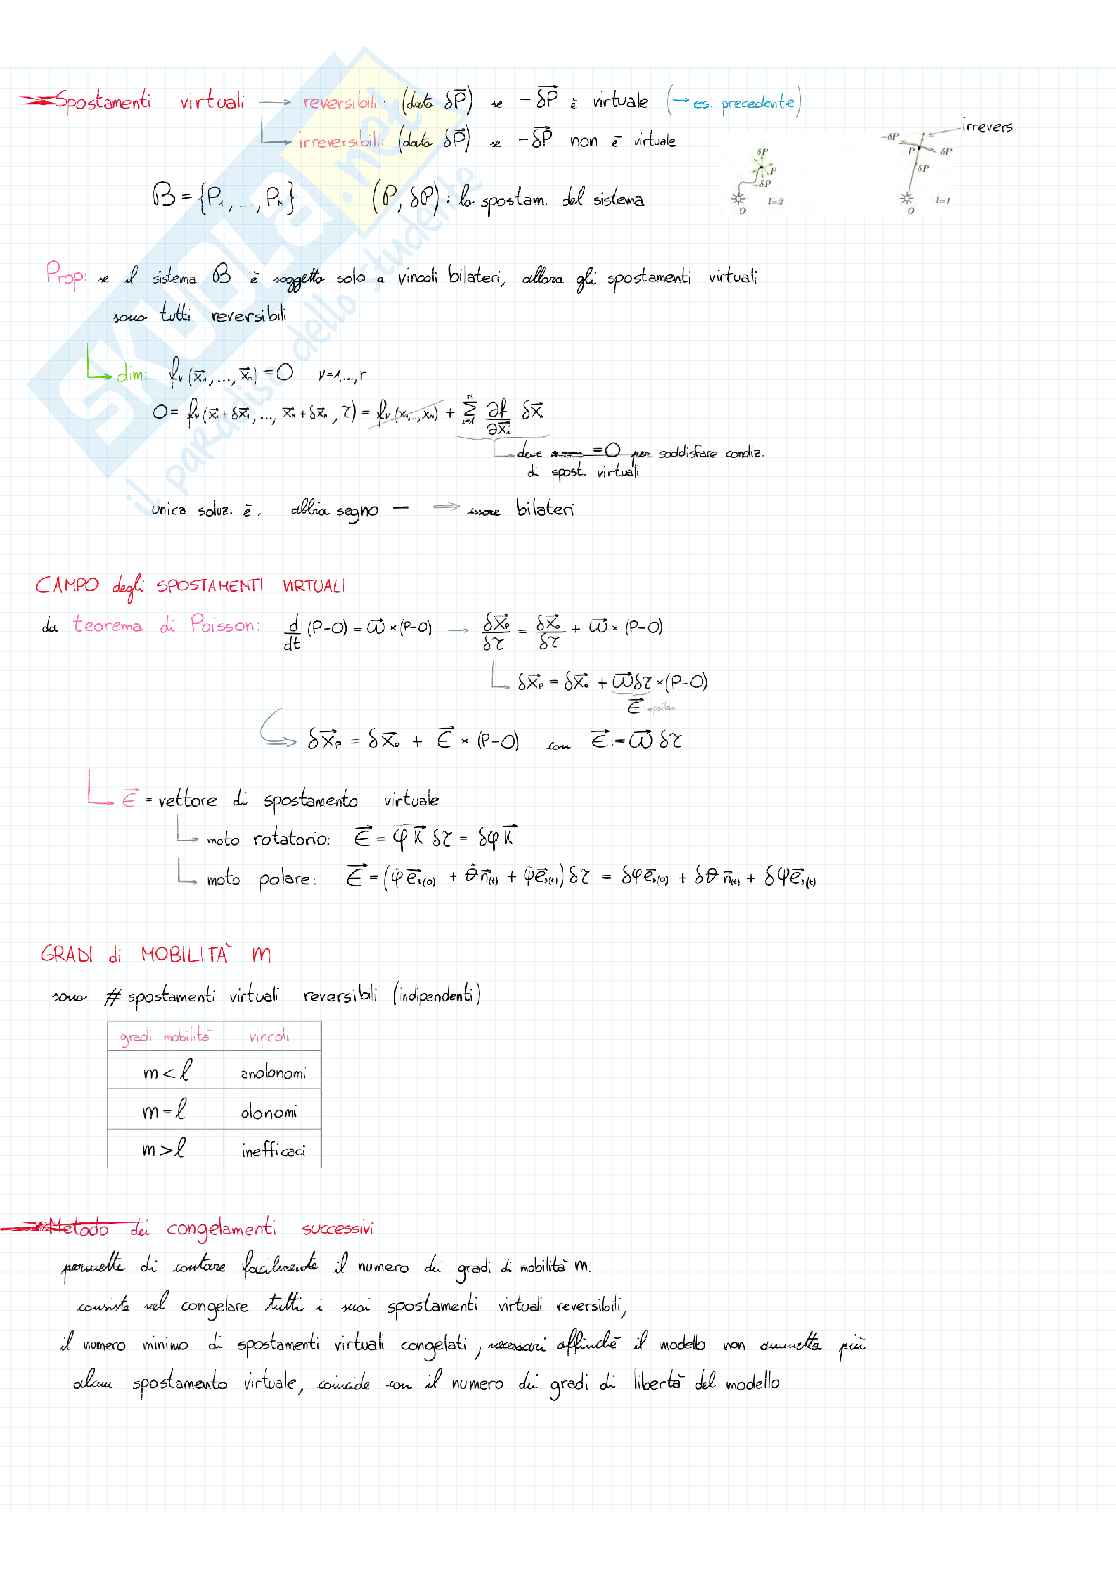 Spostamenti virtuali → reversibili: (dato δP⃗) se -δP⃗ è virtuale (→ es. precedente)
irreversibili: (dato δP⃗) se -δP⃗ non è virtuale
irrevers
-δP P δP δP O l=1
δP P -δP O l=2
B = {P₁, ..., Pₙ} (P, δP): lo spostam. del sistema
Prop: se il sistema B è soggetto solo a vincoli bilateri, allora gli spostamenti virtuali
sono tutti reversibili
dim: fᵥ(x⃗₁, ..., x⃗ₙ) = 0 ν=1,...,r
0 = fᵥ(x⃗₁+δx⃗₁, ..., x⃗ₙ+δx⃗ₙ, τ) = fᵥ(x₁,...,xₙ) + Σⁿᵢ₌₁ ∂f/∂x⃗ᵢ δx⃗ᵢ
deve =0 per soddisfare condiz.
di spost. virtuali
unica soluz. è. abbia segno − ⇒ essere bilateri
CAMPO degli SPOSTAMENTI VIRTUALI
da teorema di Poisson: d/dt (P-O) = ω⃗ × (P-O) → δx⃗ₚ/δτ = δx⃗ₒ/δτ + ω⃗ × (P-O)
δx⃗ₚ = δx⃗ₒ + ω⃗δτ × (P-O)
ε⃗ epsilon
δx⃗ₚ = δx⃗ₒ + ε⃗ × (P-O) con ε⃗ = ω⃗ δτ
ε⃗ = vettore di spostamento virtuale
moto rotatorio: ε⃗ = φ̇ k⃗ δτ = δφ k⃗
moto polare: ε⃗ = (ψ̇ e⃗₃(0) + θ̇ n⃗(t) + φ̇ e⃗₃(t)) δτ = δψ e⃗₃(0) + δθ n⃗(t) + δφ e⃗₃(t)
GRADI di MOBILITÀ m
sono # spostamenti virtuali reversibili (indipendenti)
gradi mobilità vincoli
m < l anolonomi
m = l olonomi
m > l inefficaci
Metodo dei congelamenti successivi
permette di contare facilmente il numero dei gradi di mobilità m.
consiste nel congelare tutti i suoi spostamenti virtuali reversibili,
il numero minimo di spostamenti virtuali congelati, necessari affinchè il modello non ammetta più
alcun spostamento virtuale, coincide con il numero dei gradi di libertà del modello
SKUOLA.net
il paradiso dello studente